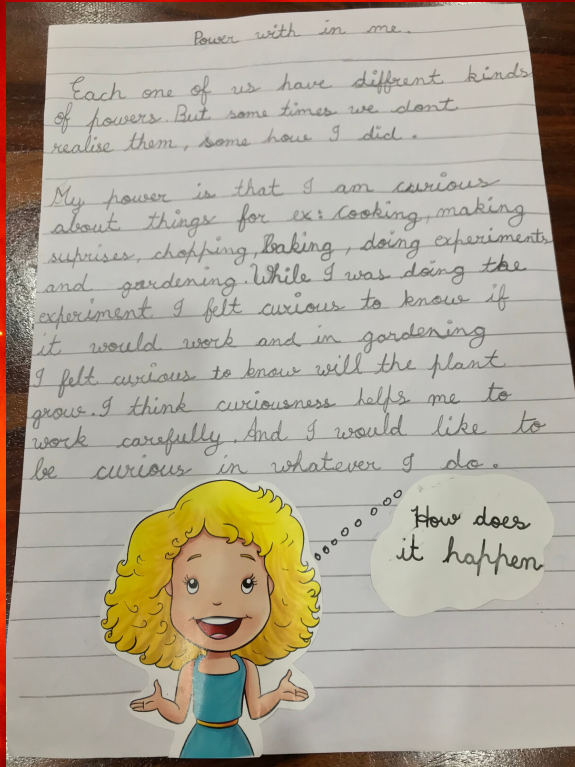 Power with in me.
Each one of us have diffrent kinds
of powers. But some times we dont
realise them, some how I did.
My power is that I am curious
about things for ex: Cooking, making
suprises, chopping, Baking, doing experiments
and gardening. While I was doing the
experiment I felt curious to know if
it would work and in gardening
I felt curious to know will the plant
grow. I think curiousness helps me to
work carefully. And I would like to
be curious in whatever I do.
How does
it happen